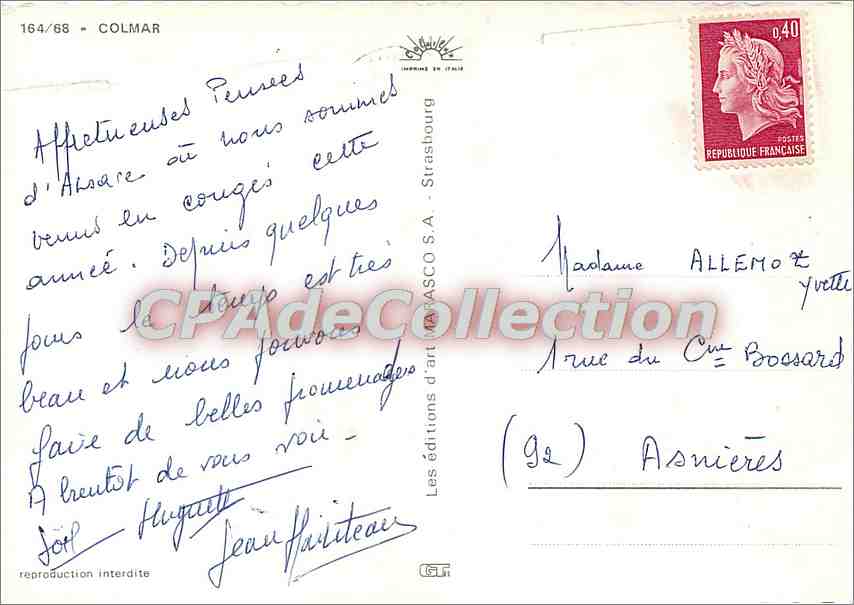 164/68 - COLMAR
IMPRIMÉ EN ITALIE
0,40
POSTES
REPUBLIQUE FRANÇAISE
Affectueuses Pensées
d'Alsace où nous sommes
venus en congés cette
année. Depuis quelques
jours le temps est très
beau et nous pouvons
faire de belles promenades
A bientôt de vous voir -
Joël Huguette
Jean
reproduction interdite
Les éditions d'art MARASCO S.A. - Strasbourg
CPAdeCollection.com
Madame ALLEMOZ
Yvette
1 rue du Cne Bossard
(92) Asnières